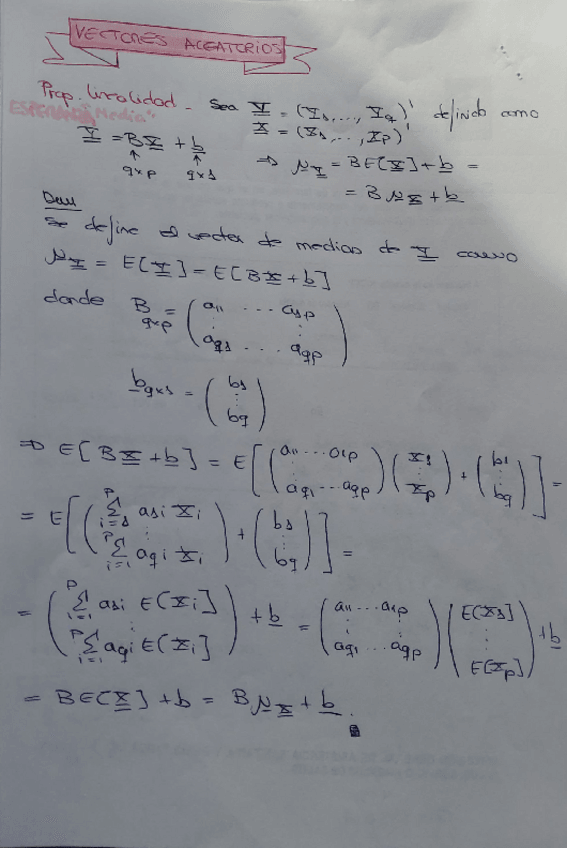 VECTORES ALEATORIOS
Prop. linealidad - Sea Y = (Y1, ..., Yq)' definido como
ESPERANZA "Media" X = (X1, ..., Xp)'
Y = BX + b ⇒ μY = BE[X] + b =
↑ ↑
qxp qx1 = B μX + b
Dem
Se define el vector de medias de Y como
μY = E[Y] = E[BX + b]
donde B qxp = (a11 ... a1p ⋮ ⋮ aq1 ... aqp)
b qx1 = (b1 ⋮ bq)
⇒ E[BX + b] = E[(a11 ... a1p ⋮ aq1 ... aqp)(X1 ⋮ Xp) + (b1 ⋮ bq)] =
= E[(∑_{i=1}^{p} a1i Xi ⋮ ∑_{i=1}^{p} aqi Xi) + (b1 ⋮ bq)] =
= (∑_{i=1}^{p} a1i E[Xi] ⋮ ∑_{i=1}^{p} aqi E[Xi]) + b = (a11 ... a1p ⋮ ⋮ aq1 ... aqp)(E[X1] ⋮ E[Xp]) + b
= BE[X] + b = B μX + b.